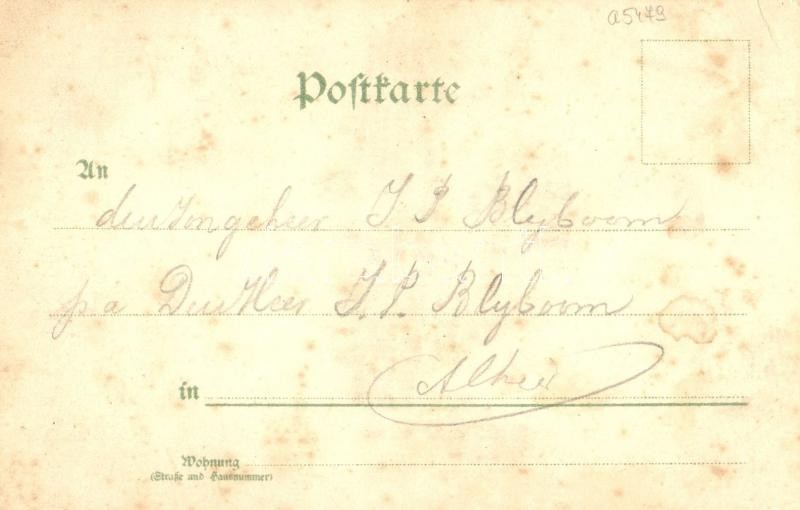 a5479
Postkarte
An
den Jongeheer J P Blyboom
p/a Den Heer J. P. Blyboom
in
Wohnung
(Straße und Hausnummer)